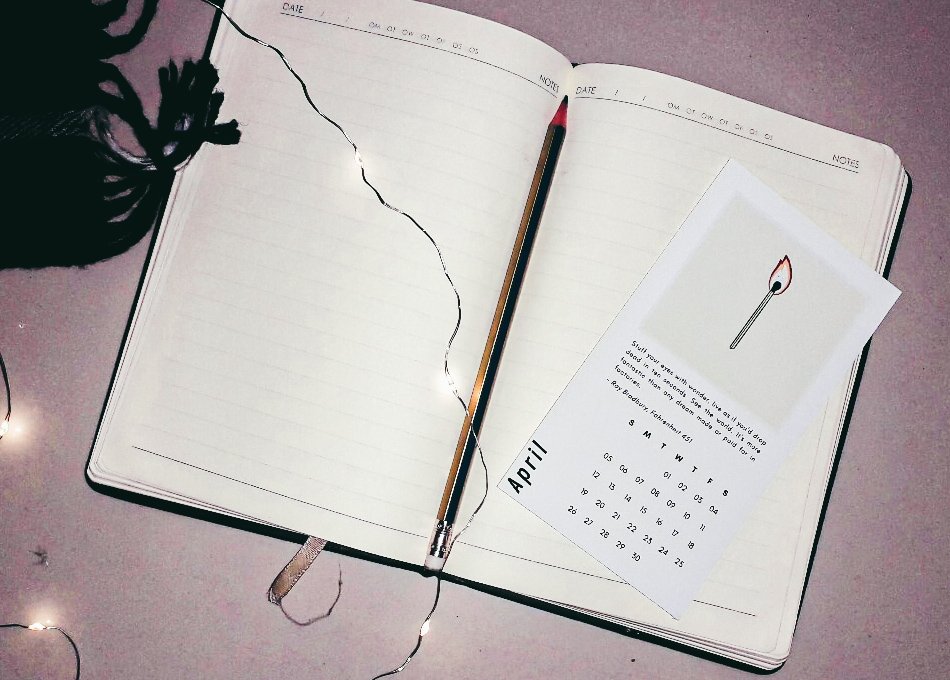 DATE / / OM OT OW OT OF OS OS
NOTES
DATE / / OM OT OW OT OF OS OS
NOTES
Stuff your eyes with wonder, live as if you'd drop
dead in ten seconds. See the world. It's more
fantastic than any dream made or paid for in
factories.
- Ray Bradbury, Fahrenheit 451
April
S M T W T F S
01 02 03 04
05 06 07 08 09 10 11
12 13 14 15 16 17 18
19 20 21 22 23 24 25
26 27 28 29 30